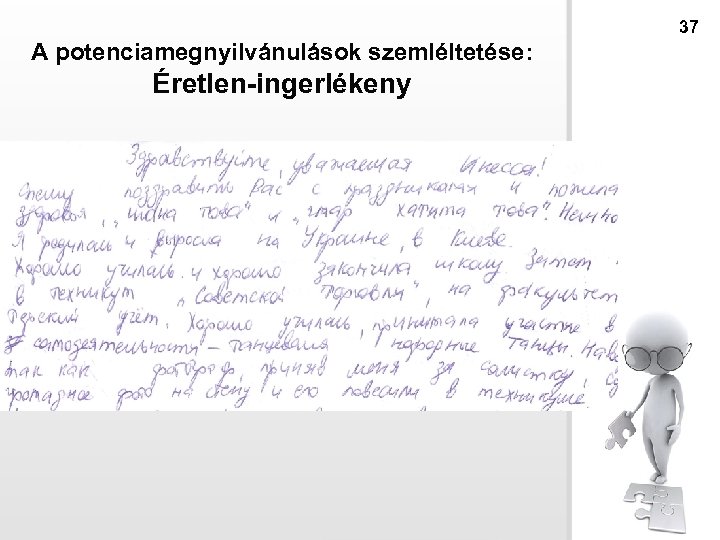 37
A potenciamegnyilvánulások szemléltetése:
Éretlen-ingerlékeny
Здравствуйте, уважаемая Инесса!
Спешу поздравить Вас с праздниками и пожела
здоровья, „шана това" и „гмар хатима това". Немно
Я родилась и выросла на Украине, в Киеве.
Хорошо училась и хорошо закончила школу. Затем
в техникум „Советской торговли", на факультет
терский учёт. Хорошо училась, принимала участие в
самодеятельности – танцевала народные танцы. Наве
так как фотограф, приняв меня за солистку, сд
громадное фото на стену и его повесили в техникуме.